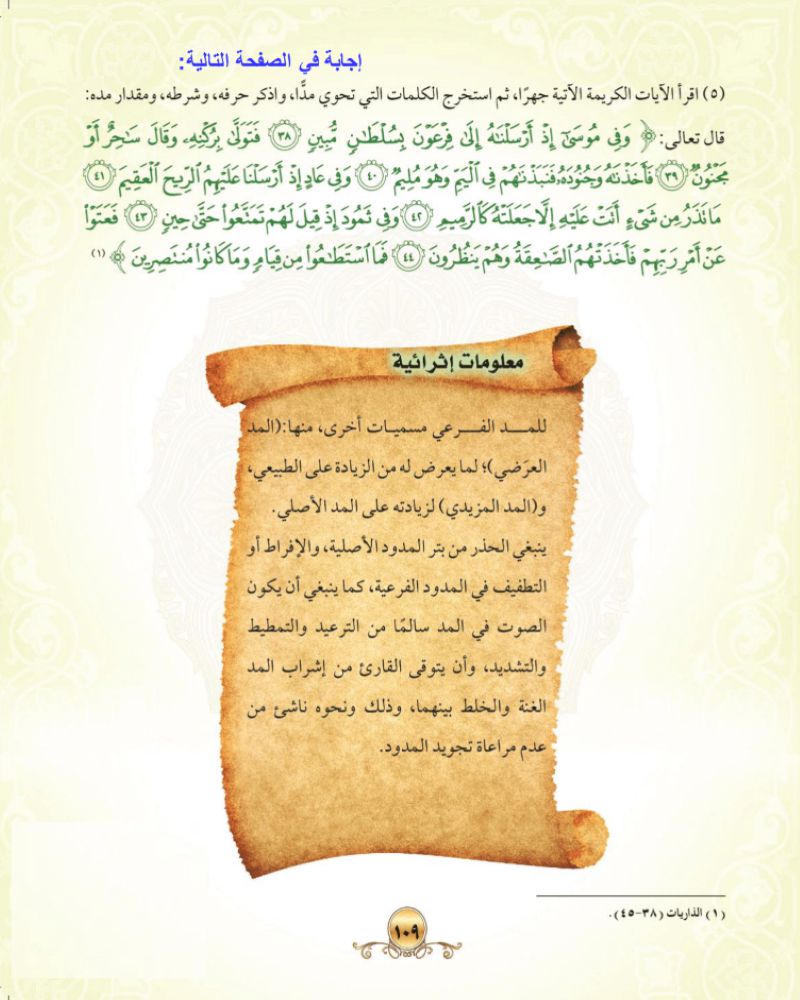 إجابة في الصفحة التالية:
(٥) اقرأ الآيات الكريمة الآتية جهرًا، ثم استخرج الكلمات التي تحوي مدًّا، واذكر حرفه، وشرطه، ومقدار مده:
قال تعالى: ﴿ وَفِي مُوسَىٰٓ إِذۡ أَرۡسَلۡنَٰهُ إِلَىٰ فِرۡعَوۡنَ بِسُلۡطَٰنٖ مُّبِينٖ ٣٨ فَتَوَلَّىٰ بِرُكۡنِهِۦ وَقَالَ سَٰحِرٌ أَوۡ
مَجۡنُونٞ ٣٩ فَأَخَذۡنَٰهُ وَجُنُودَهُۥ فَنَبَذۡنَٰهُمۡ فِي ٱلۡيَمِّ وَهُوَ مُلِيمٞ ٤٠ وَفِي عَادٍ إِذۡ أَرۡسَلۡنَا عَلَيۡهِمُ ٱلرِّيحَ ٱلۡعَقِيمَ ٤١
مَا تَذَرُ مِن شَيۡءٍ أَتَتۡ عَلَيۡهِ إِلَّا جَعَلَتۡهُ كَٱلرَّمِيمِ ٤٢ وَفِي ثَمُودَ إِذۡ قِيلَ لَهُمۡ تَمَتَّعُواْ حَتَّىٰ حِينٖ ٤٣ فَعَتَوۡاْ
عَنۡ أَمۡرِ رَبِّهِمۡ فَأَخَذَتۡهُمُ ٱلصَّٰعِقَةُ وَهُمۡ يَنظُرُونَ ٤٤ فَمَا ٱسۡتَطَٰعُواْ مِن قِيَامٖ وَمَا كَانُواْ مُنتَصِرِينَ ﴾ (١)
معلومات إثرائية
للمـــد الفـــرعي مسميـات أخرى، منها:(المد
العرَضي)؛ لما يعرض له من الزيادة على الطبيعي،
و(المد المزيدي) لزيادته على المد الأصلي.
ينبغي الحذر من بتر المدود الأصلية، والإفراط أو
التطفيف في المدود الفرعية، كما ينبغي أن يكون
الصوت في المد سالمًا من الترعيد والتمطيط
والتشديد، وأن يتوقى القارئ من إشراب المد
الغنة والخلط بينهما، وذلك ونحوه ناشئ من
عدم مراعاة تجويد المدود.
(١) الذاريات (٣٨-٤٥).
١٠٩